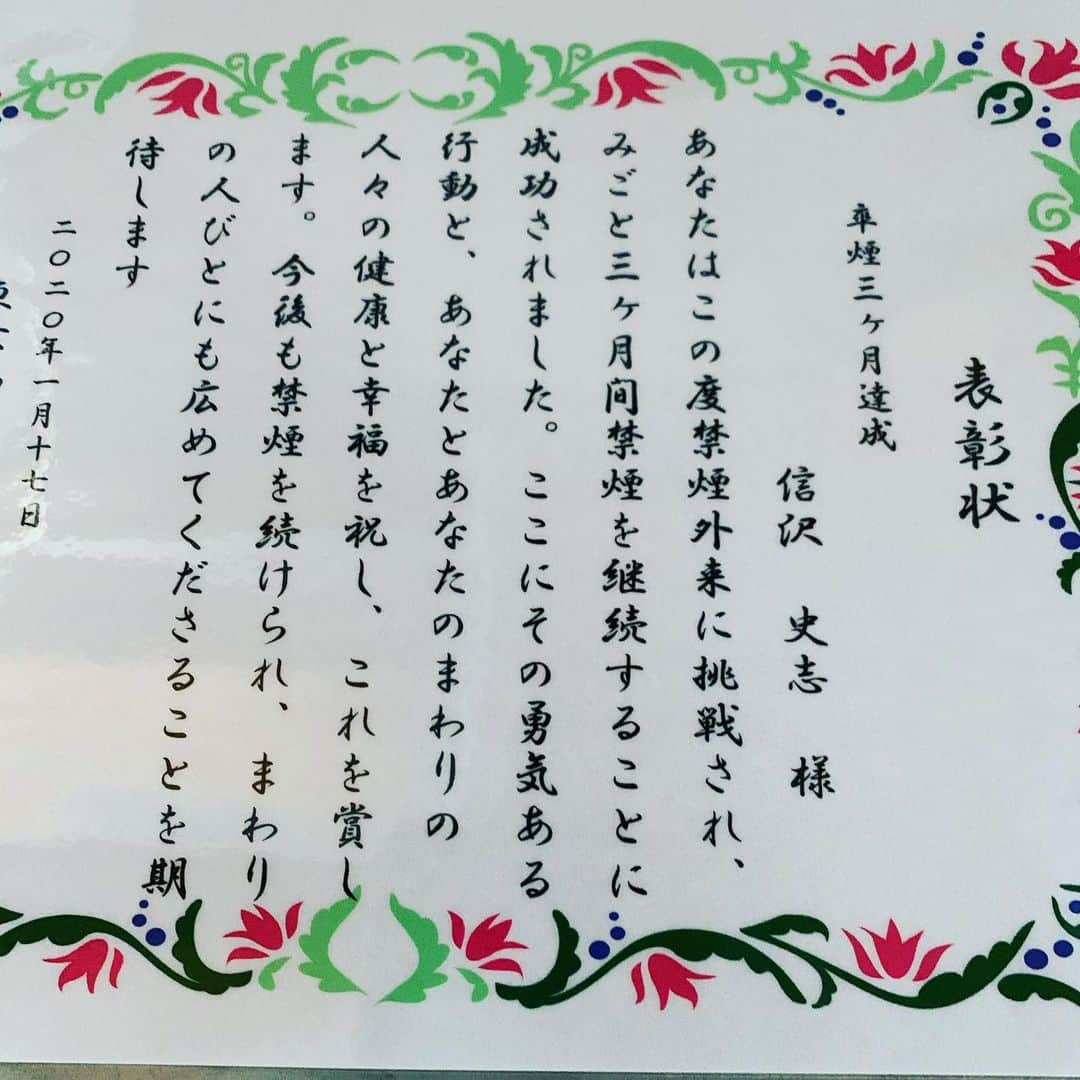 表彰状
卒煙三ヶ月達成
信沢 史志 様
あなたはこの度禁煙外来に挑戦され、
みごと三ヶ月間禁煙を継続することに
成功されました。ここにその勇気ある
行動と、あなたとあなたのまわりの
人々の健康と幸福を祝し、これを賞し
ます。今後も禁煙を続けられ、まわり
の人びとにも広めてくださることを期
待します
二〇二〇年一月十七日